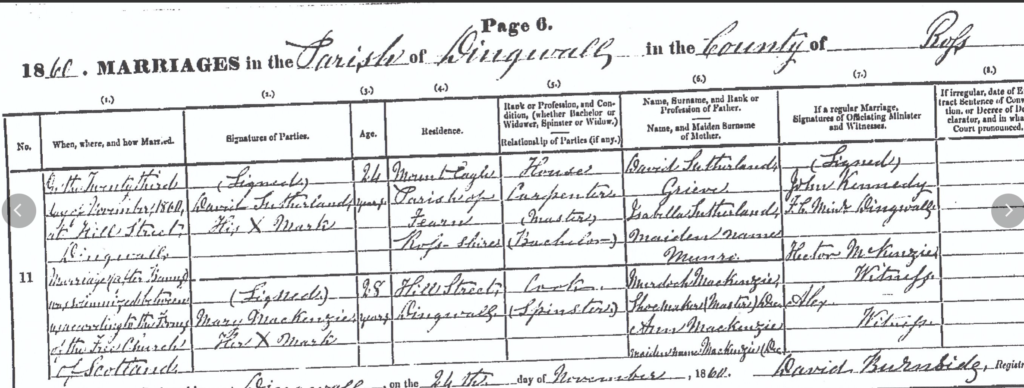 Page 6.
1860. MARRIAGES in the Parish of Dingwall in the County of Ross
(1.) (2.) (3.) (4.) (5.) (6.) (7.) (8.)
No.
When, where, and how Married.
Signatures of Parties.
Age.
Residence.
Rank or Profession, and Con-
dition, (whether Bachelor or
Widower, Spinster or Widow.)
Relationship of Parties (if any.)
Name, Surname, and Rank or
Profession of Father.
Name, and Maiden Surname
of Mother.
If a regular Marriage,
Signatures of Officiating Minister
and Witnesses.
If irregular, date of E
tract Sentence of Conv
tion, or Decree of De
clarator, and in wha
Court pronounced.
11
On the Twenty third
day of November, 1860,
at Hill Street,
Dingwall
Marriage (after Banns)
was solemnized between
us according to the Forms
of the Free Church
of Scotland
(Signed)
David Sutherland,
His X Mark
(Signed)
Mary Mackenzie
Her X Mark
24
years
28
years
Mount Eagle
Parish of
Fearn
Ross shire
Hill Street,
Dingwall
House
Carpenter
(Master)
(Bachelor)
Cook
(Spinster)
David Sutherland,
Grieve
Isabella Sutherland,
Maiden name
Munro
Murdoch Mackenzie,
Shoemaker (Master) Dec
Ann Mackenzie
maiden name Mackenzie (Dec
(Signed)
John Kennedy
F.C. Minr Dingwall
Hector McKenzie,
Witness
Alex
Witness
Dingwall on the 24th day of November, 1860. David Burnside, Registr